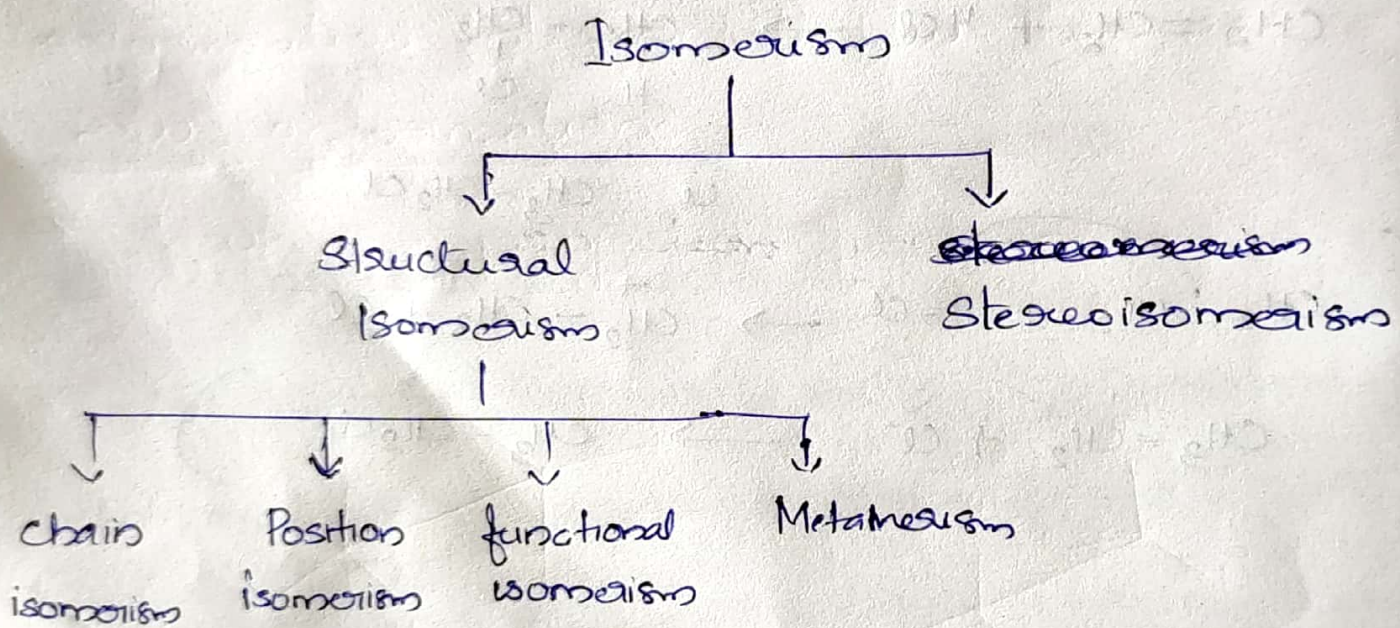 Isomerism
Structural
Isomerism
Stereoisomerism
Chain
isomerism
Position
isomerism
functional
isomerism
Metamerism